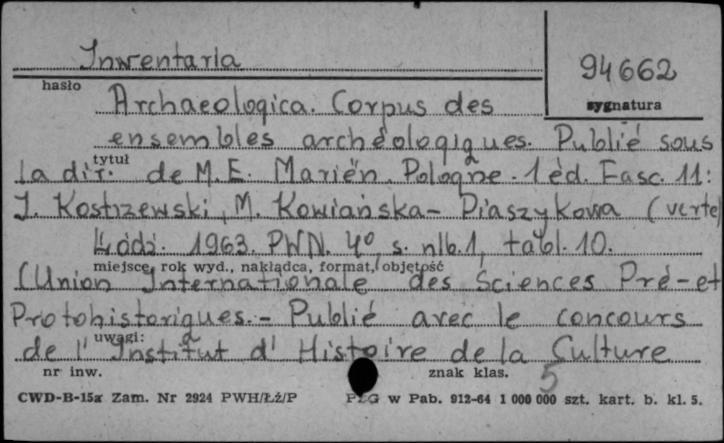 Inwentaria
94662
hasło
sygnatura
Archaeologica. Corpus des
ensembles archéologiques. Publié sous
tytuł
la dir. de M. E. Mariën. Pologne. 1 éd. Fasc. 11:
J. Kostrzewski, M. Kowiańska-Piaszykowa (verte)
Łódź. 1963. PWN. 4°, s. nlb. 1, tabl. 10.
miejsce, rok wyd., nakładca, format, objętość
(Union Internationale des Sciences Pré- et
Protohistoriques. - Publié avec le concours
uwagi:
de l'Institut d'Histoire de la Culture
nr inw.
znak klas.
5
CWD-B-15a Zam. Nr 2924 PWH/ŁŻ/P
PZG w Pab. 912-64 1 000 000 szt. kart. b. kl. 5.